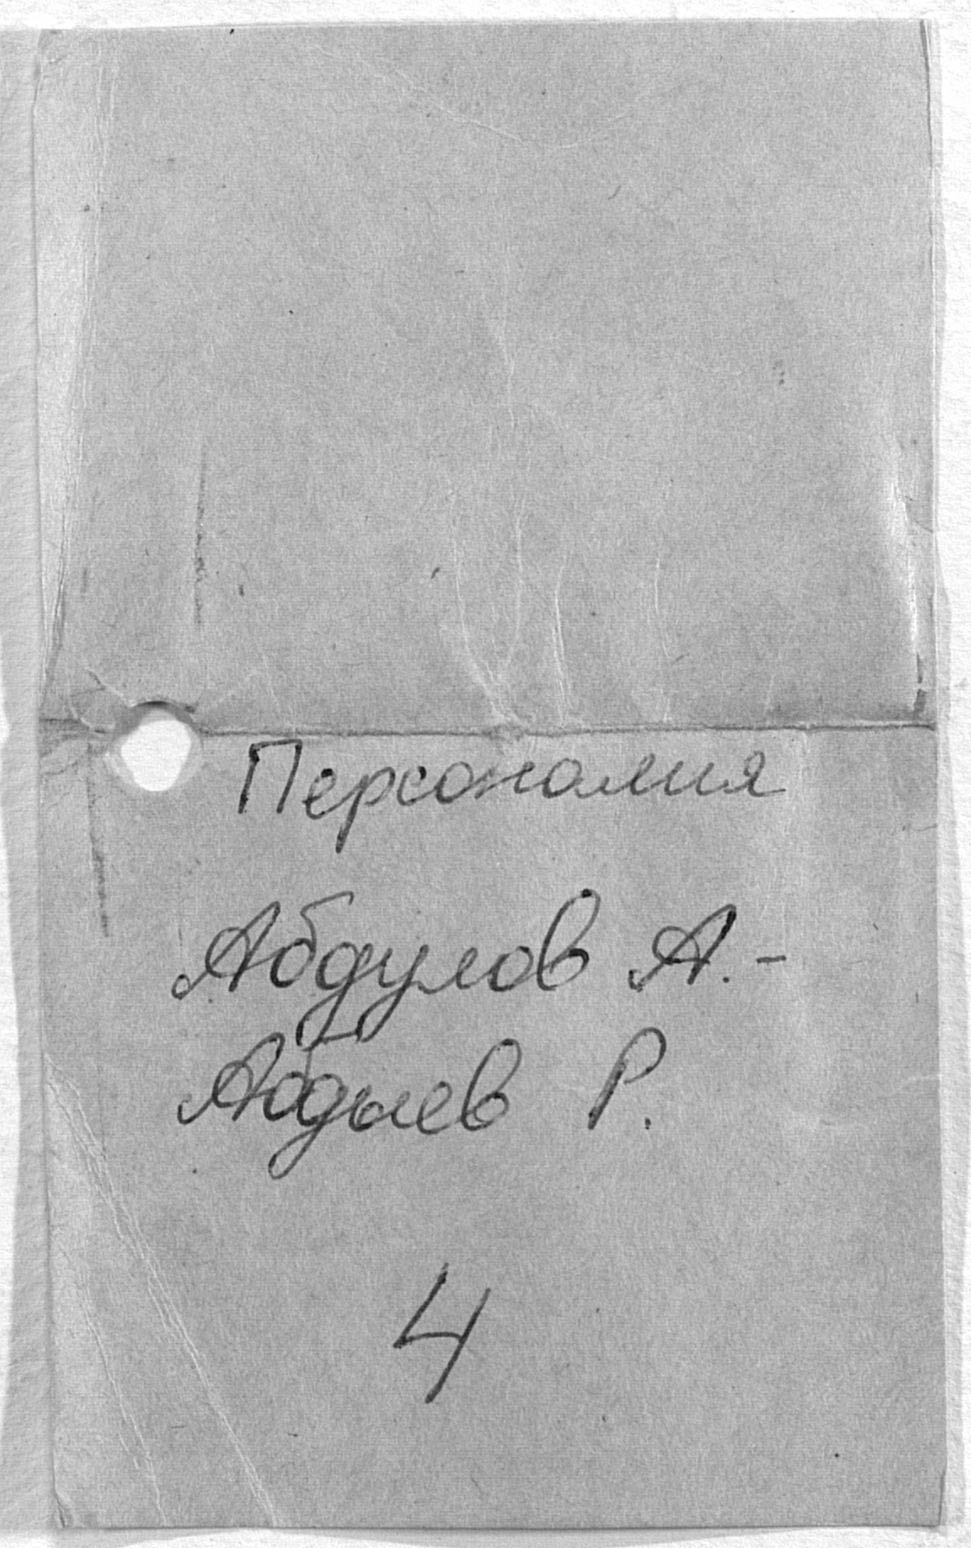 Персоналия
Абдулов А. -
Абдыев Р.
4